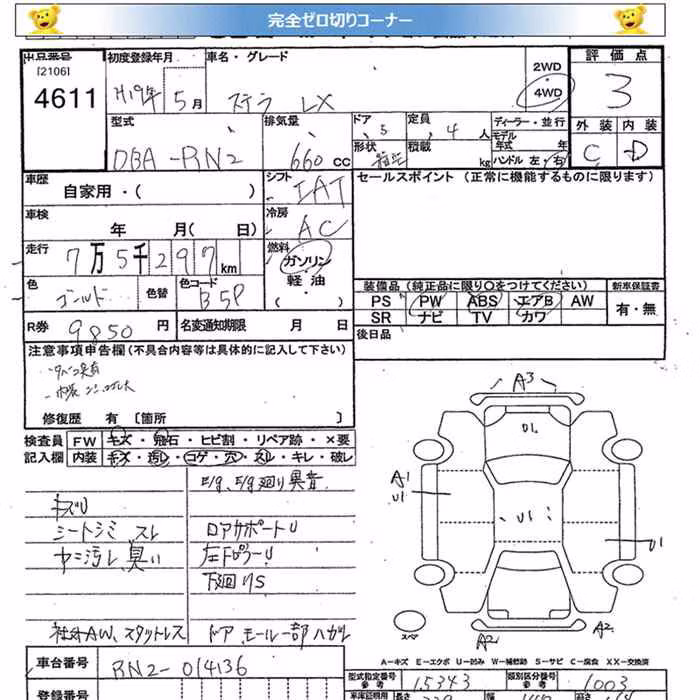 完全ゼロ切りコーナー
出品番号 初度登録年月 車名・グレード 評価点
[2106]
4611 H19年 5月 ステラ LX 2WD 4WD 3
型式 排気量 ドア 定員 ディーラー・並行 外装 内装
DBA-RN2 660cc 5 4人 モデル年式 年 C D
形状 積載 kg ハンドル 左・右
車歴 シフト セールスポイント (正常に機能するものに限ります)
自家用・( ) IAT
車検 冷房
年 月( 日) AC
走行 燃料
7万5千297km ガソリン
色 色替 色コード 軽油
ゴールド B5P (・)
装備品 (純正品に限り○をつけてください) 新車保証書
PS PW ABS エアB AW 有・無
SR ナビ TV カワ
R券 9850円 名変通知期限 月 日 後日品
注意事項申告欄(不具合内容等は具体的に記入して下さい)
修復歴 有 〔箇所 〕
検査員 FW キズ・飛石・ヒビ割・リペア跡・×要
記入欄 内装 キズ・汚レ・コゲ・穴・スレ・キレ・破レ
E/g、E/g廻り異音
キズU
シートシミ スレ ロアサポートU
ヤニ汚レ 臭い 左FピラーU
下廻りS
社外AW、スタットレス ドアモール一部ハガレ
A3
U1
A1
U1
U1
U1
スペア
A2 A2
A-キズ E-エクボ U-凹み W-補修跡 S-サビ C-腐食 XX-交換済
車台番号 RN2-014136 型式指定番号 参考 15343 類別区分番号 参考 1003
登録番号 車庫証明用 長さ 幅 高さ